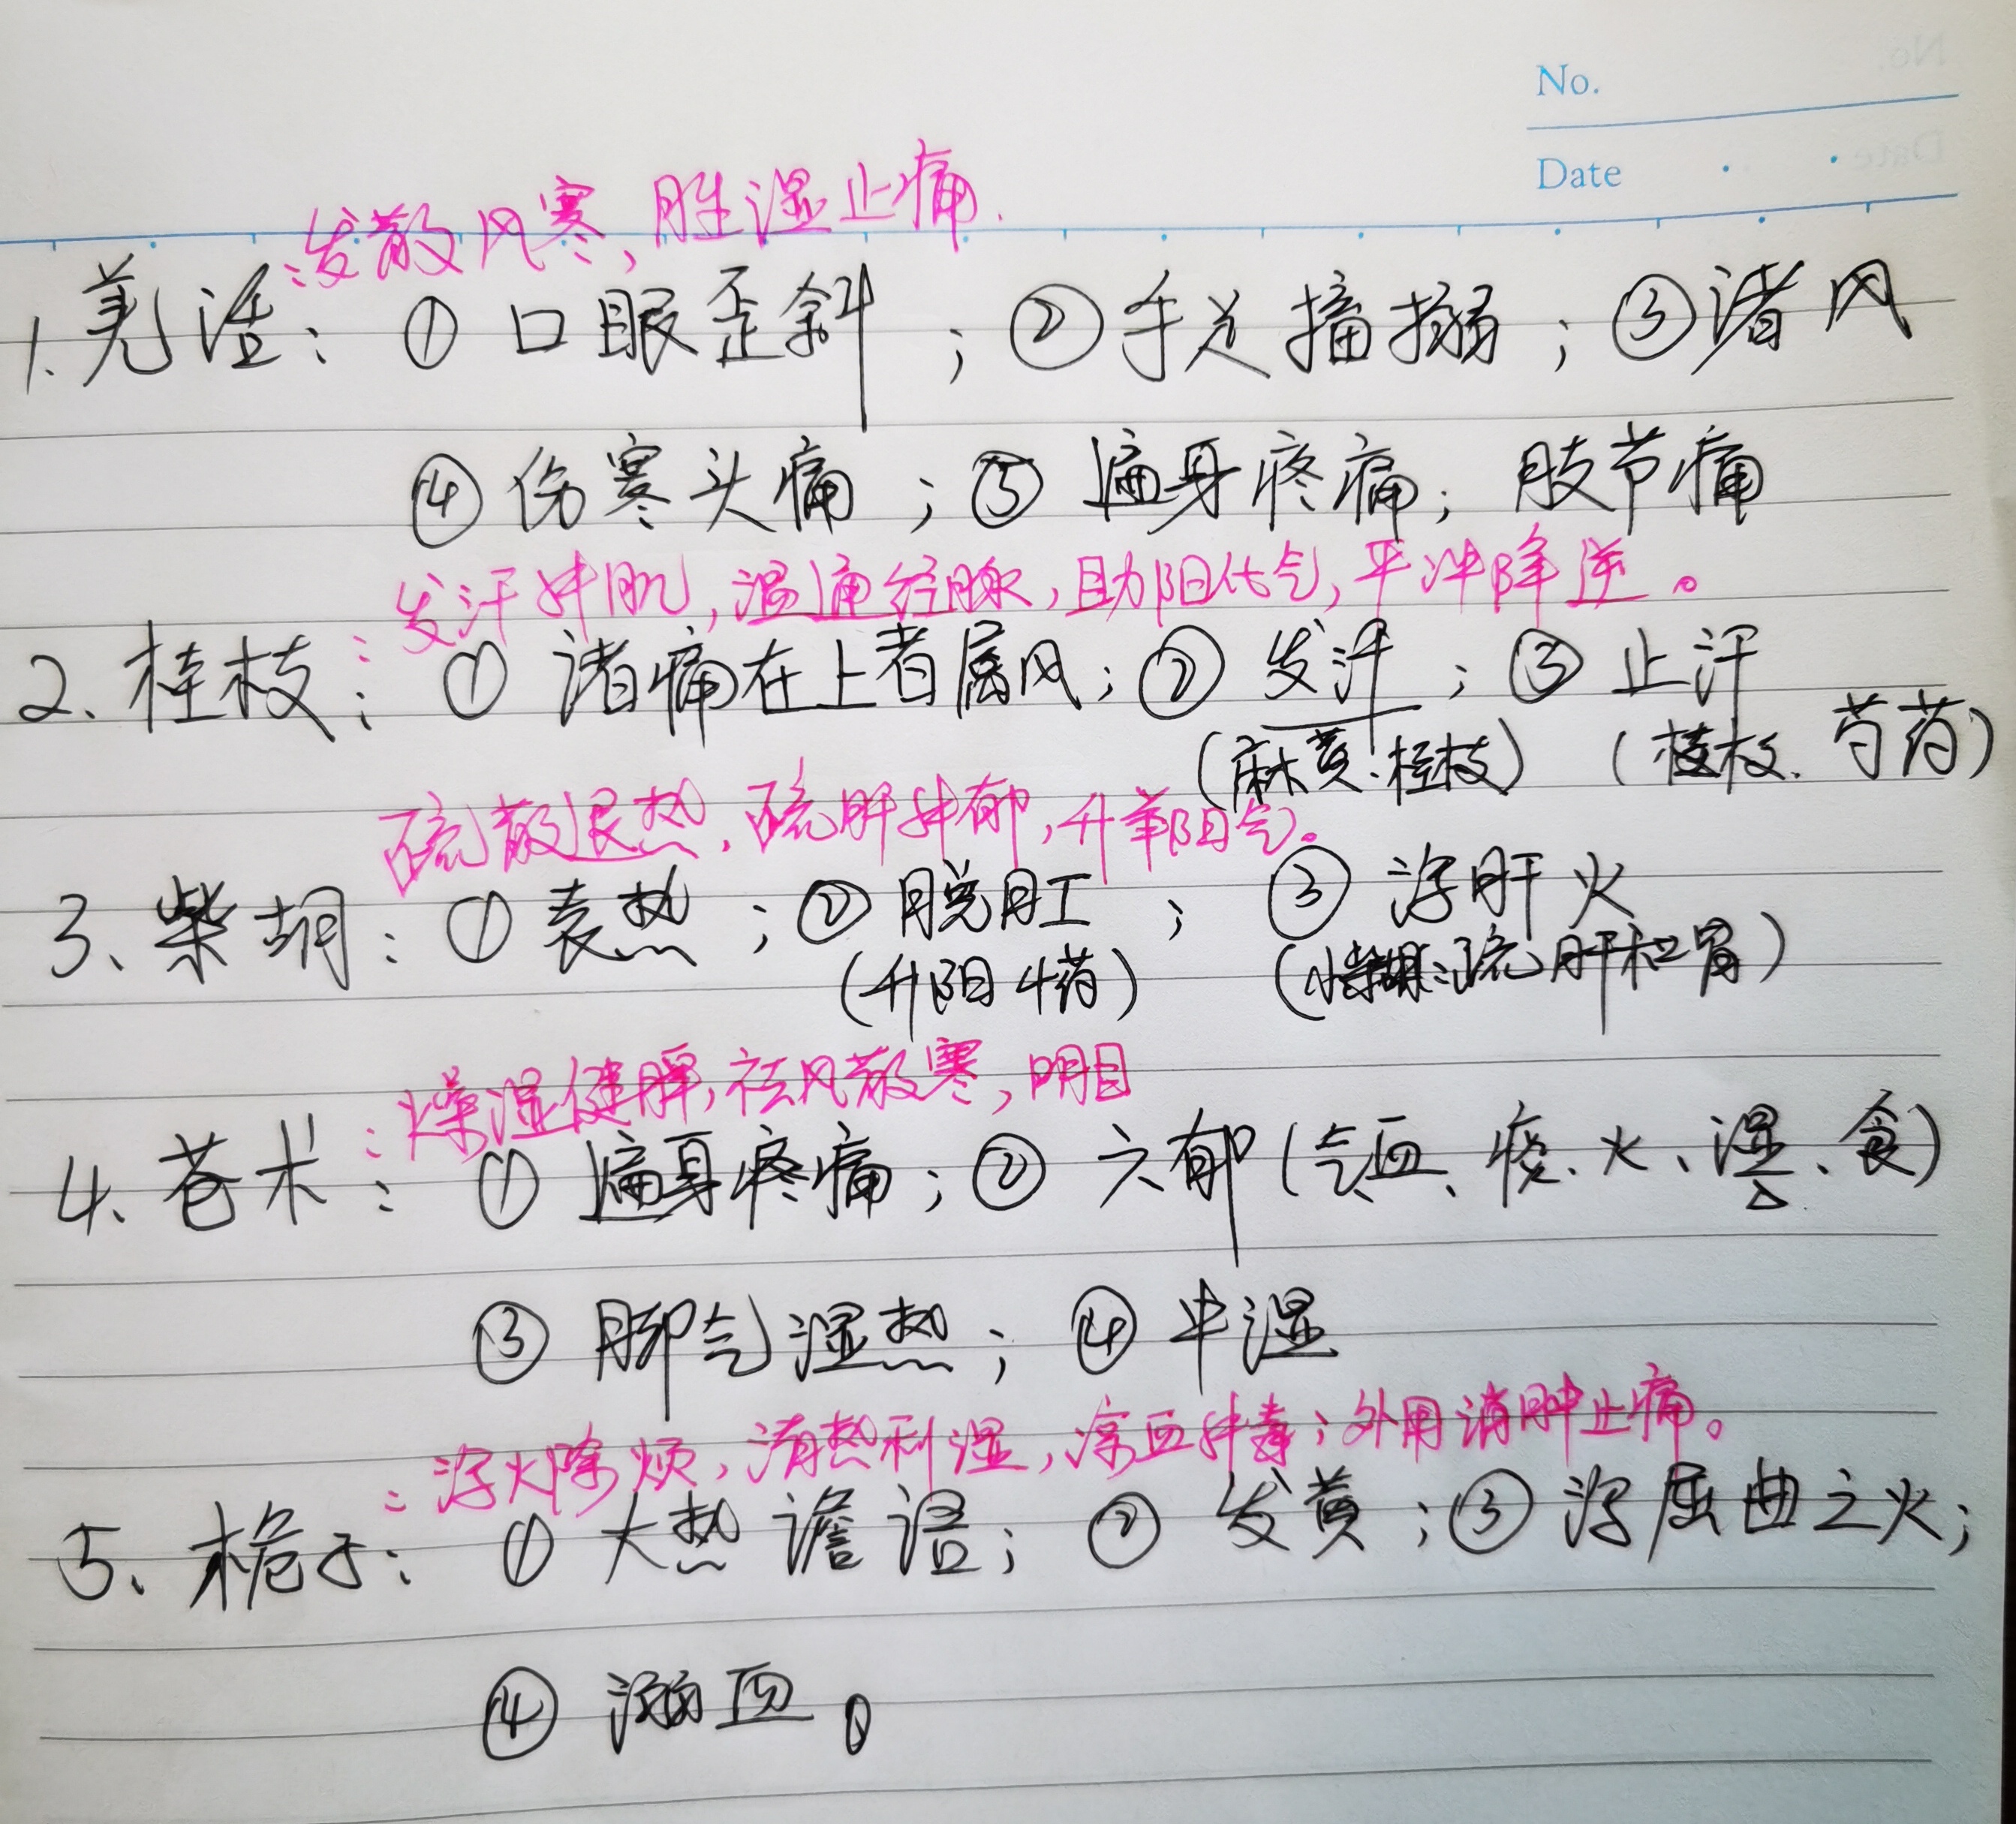 No.
Date
: 发散风寒,胜湿止痛.
1.羌活: ①口眼歪斜;②手足搐搦;③诸风
④伤寒头痛;⑤遍身疼痛;肢节痛
: 发汗解肌,温通经脉,助阳化气,平冲降逆。
2.桂枝: ①诸痛在上者属风;②发汗;③止汗
(麻黄.桂枝) (桂枝.芍药)
疏散退热,疏肝解郁,升举阳气。
3、柴胡: ①表热;②脱肛;③泻肝火
(升阳药) (疏肝和胃)
: 燥湿健脾,祛风散寒,明目
4、苍术: ①遍身疼痛;②六郁(气、血、痰、火、湿、食)
③脚气湿热;④中湿
: 泻火除烦,清热利湿,凉血解毒;外用消肿止痛。
5、栀子: ①大热谵语;②发黄;③泻屈曲之火;
④溺血。